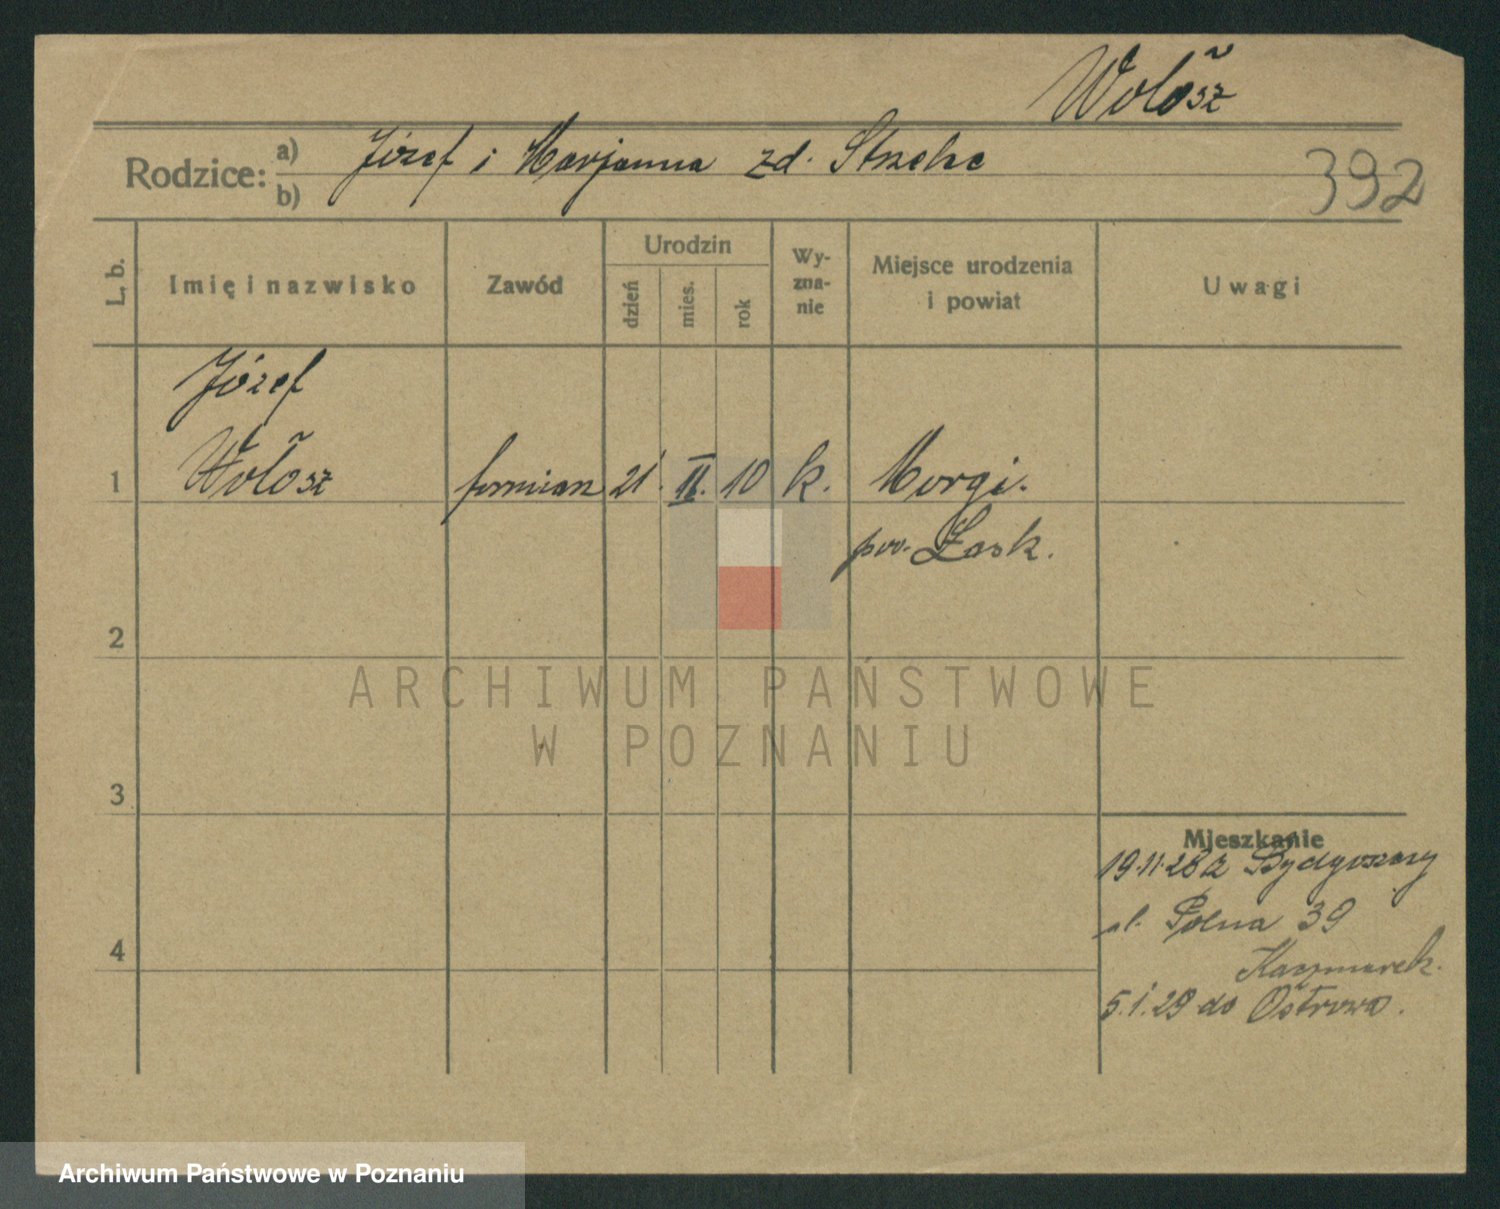 Wołosz
Rodzice: a) Józef i Marjanna zd.
b)
392
L. b.
Imię i nazwisko
Zawód
Urodzin
dzień
mies.
rok
Wy-
zna-
nie
Miejsce urodzenia
i powiat
Uwagi
Józef
1 Wołosz formiarz 21. II. 10 k. Morgi.
pow. Łask.
2
3
4
Mieszkanie
19.11.28 z Bydgoszczy
ul. Polna 39
Kaczmarek.
5.1.29 do Ostrowa.
ARCHIWUM PAŃSTWOWE
W POZNANIU
Archiwum Państwowe w Poznaniu